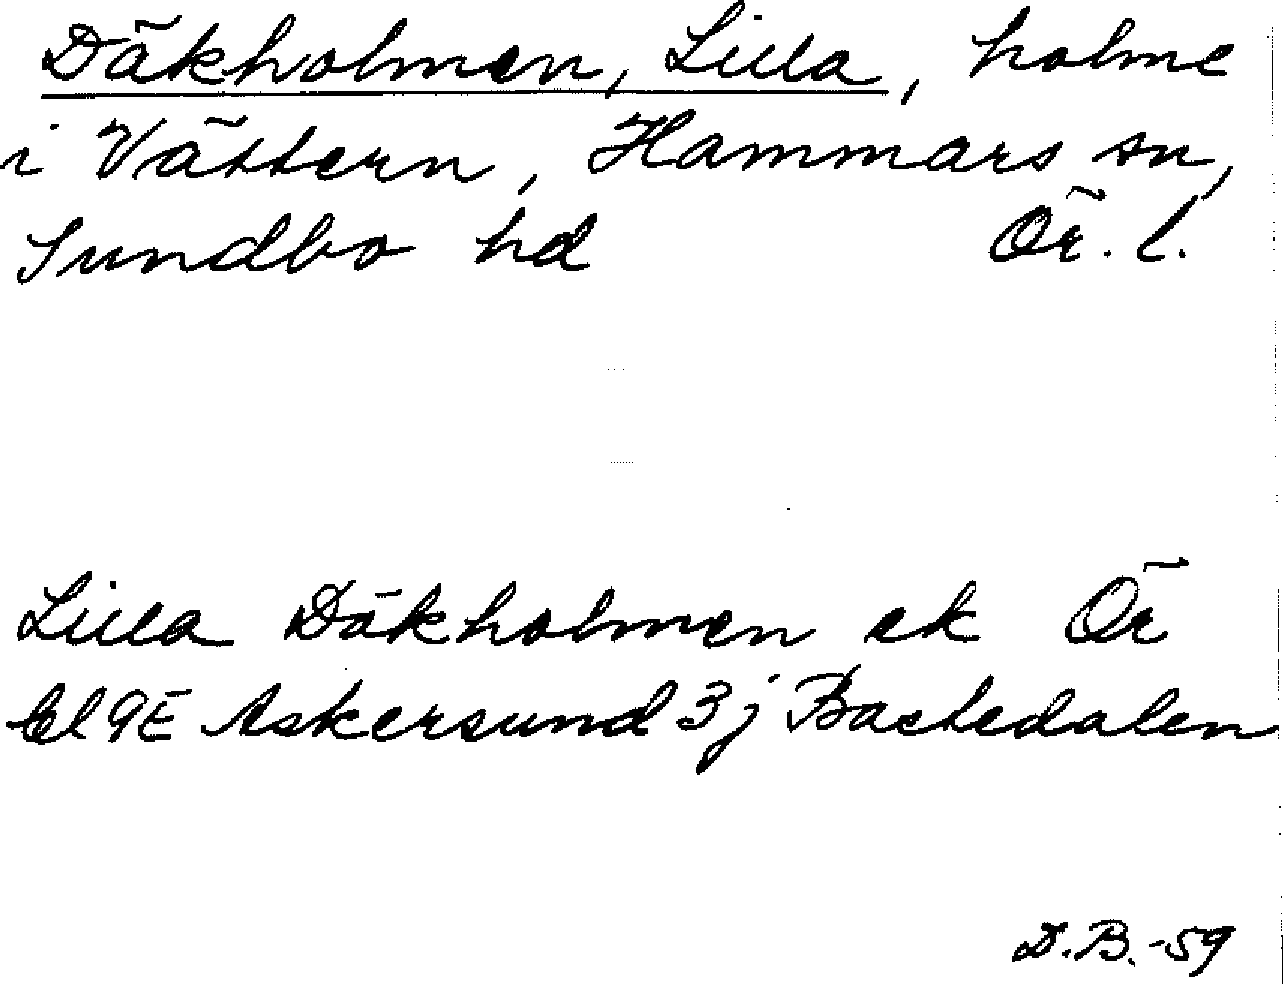 Däkholmen, Lilla, holme
i Vättern, Hammars sn,
Sundbo hd Ör. l.
Lilla Däkholmen ek Ör
bl 9E Askersund 3j Bastedalen
D.B.-59